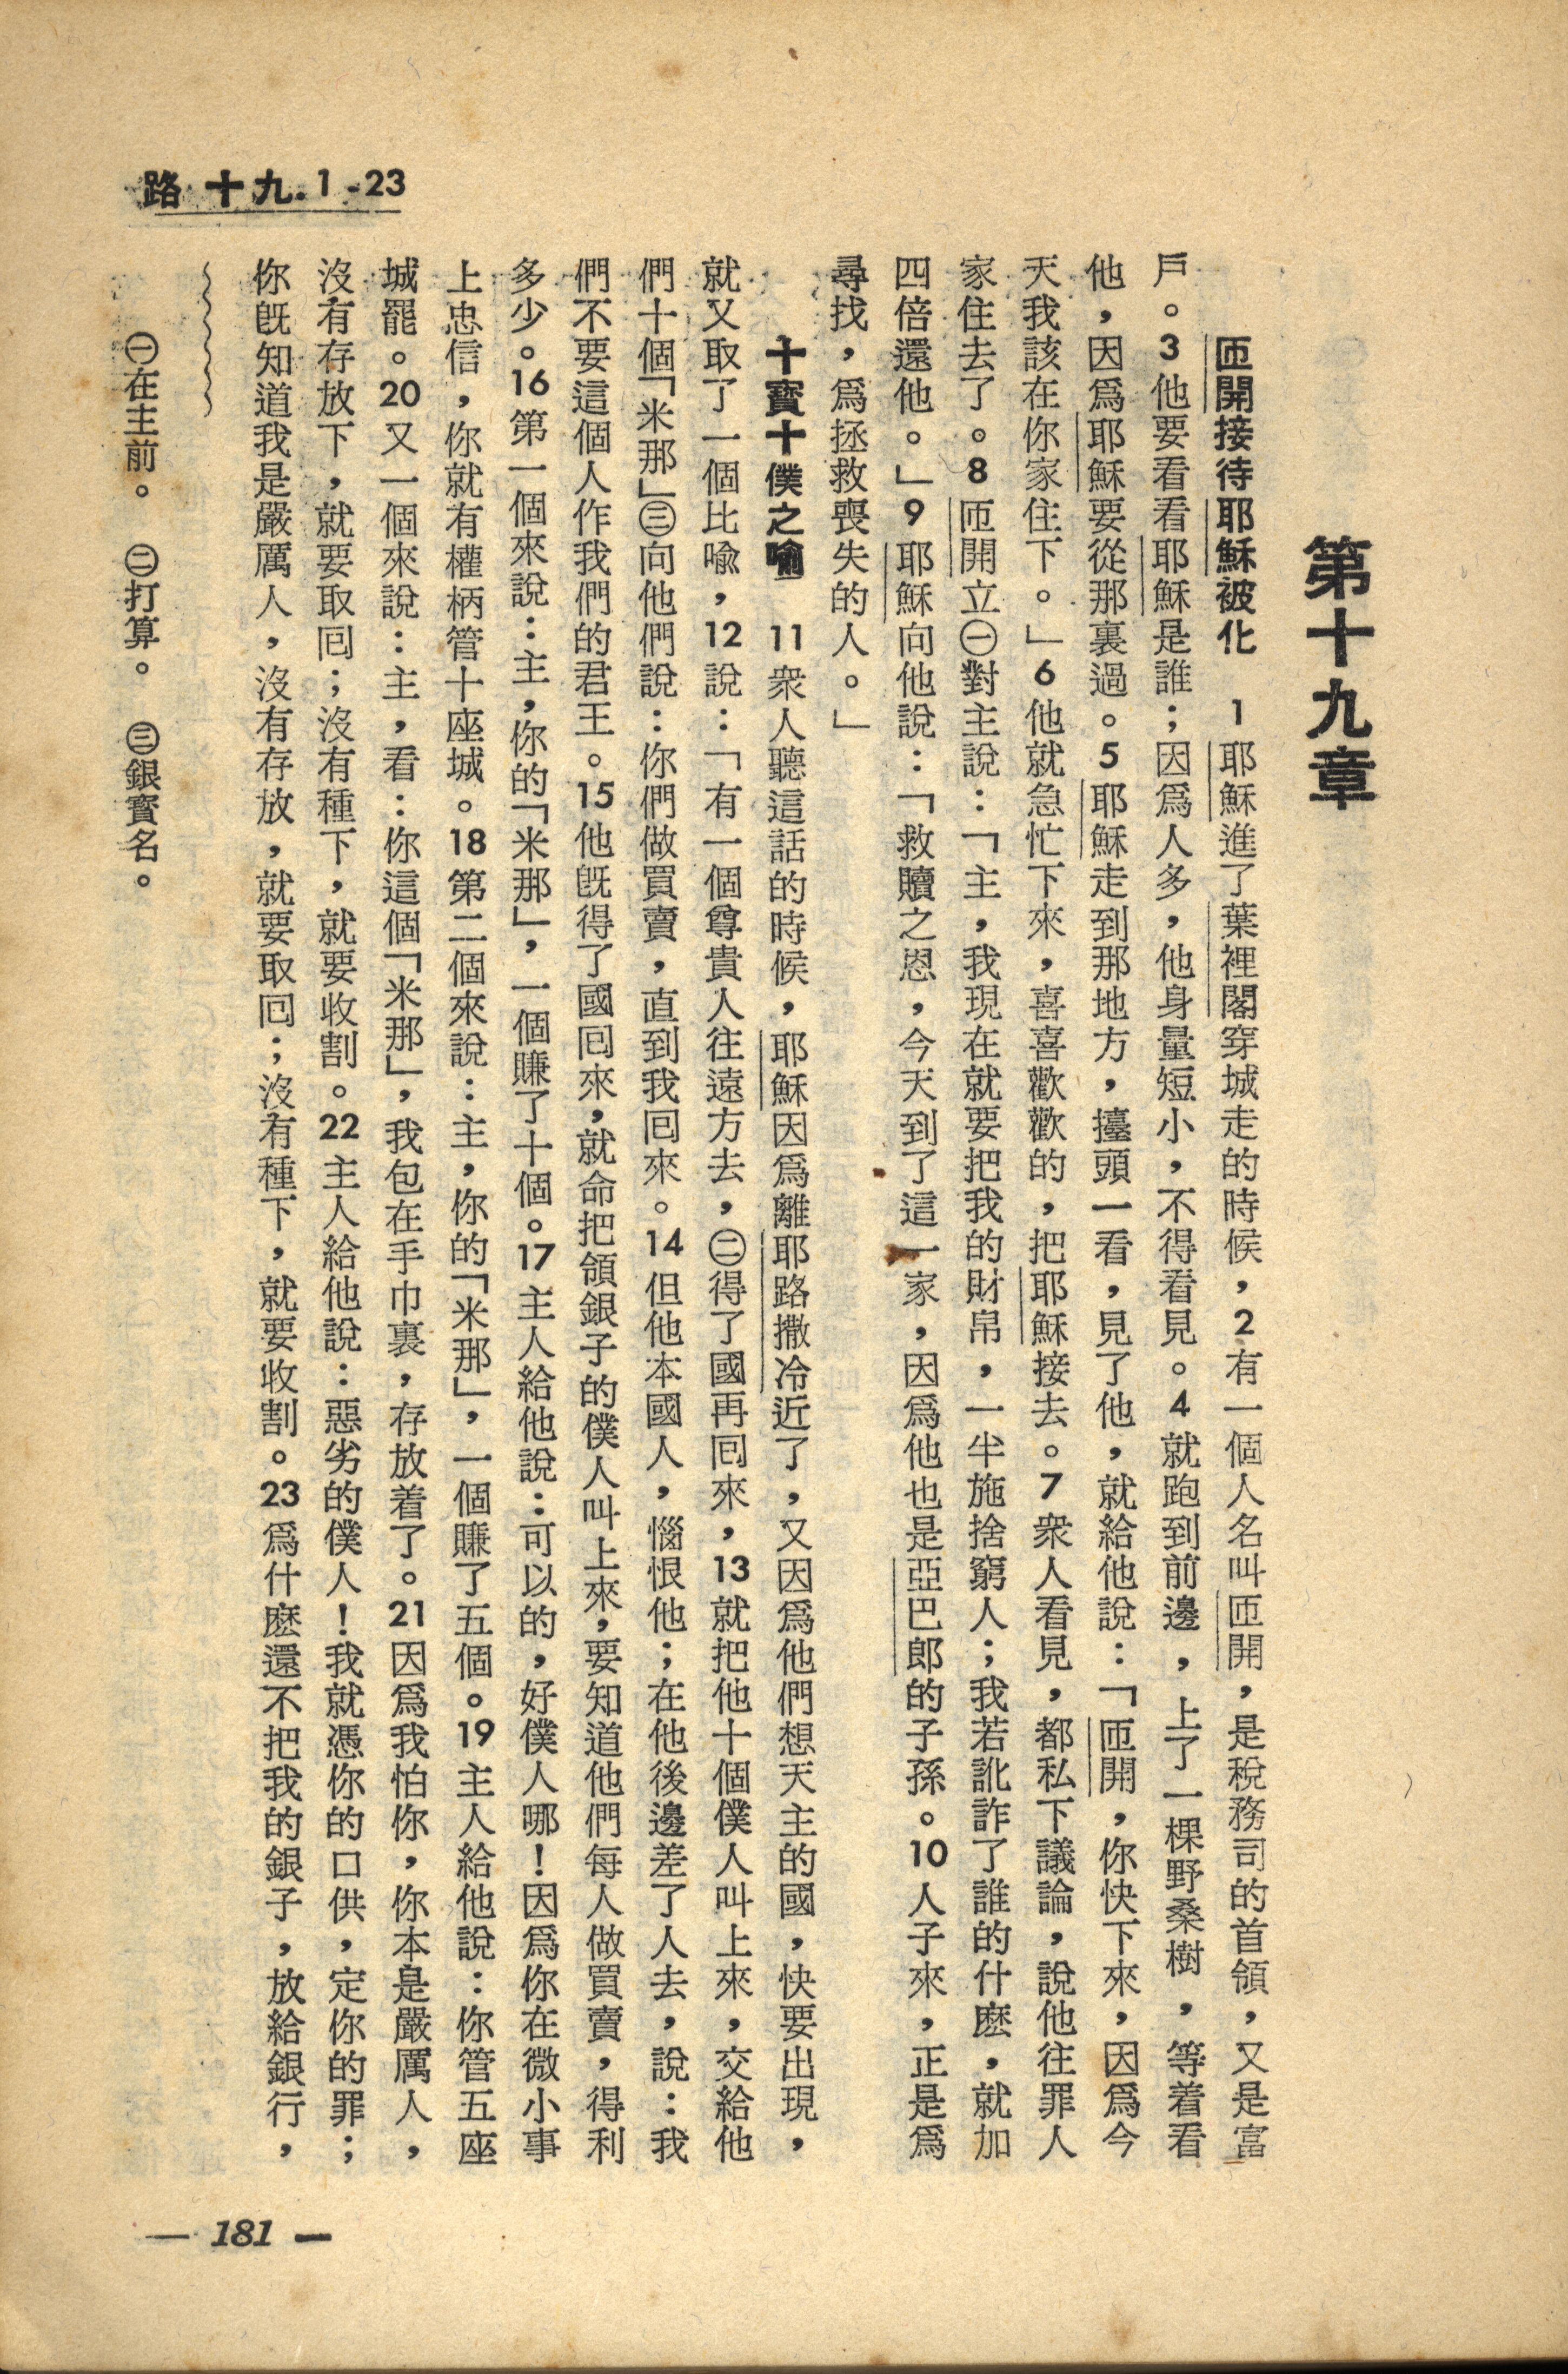 路十九.1-23
第十九章
匝開接待耶穌被化　1耶穌進了葉裡閣穿城走的時候，2有一個人名叫匝開，是稅務司的首領，又是富
戶。3他要看看耶穌是誰；因爲人多，他身量短小，不得看見。4就跑到前邊，上了一棵野桑樹，等着看
他，因爲耶穌要從那裏過。5耶穌走到那地方，擡頭一看，見了他，就給他說：「匝開，你快下來，因爲今
天我該在你家住下。」6他就急忙下來，喜喜歡歡的，把耶穌接去。7衆人看見，都私下議論，說他往罪人
家住去了。8匝開立㊀對主說：「主，我現在就要把我的財帛，一半施捨窮人；我若訛詐了誰的什麽，就加
四倍還他。」9耶穌向他說：「救贖之恩，今天到了這一家，因爲他也是亞巴郎的子孫。10人子來，正是爲
尋找，爲拯救喪失的人。」
十寳十僕之喻　11衆人聽這話的時候，耶穌因爲離耶路撒冷近了，又因爲他們想天主的國，快要出現，
就又取了一個比喻，12說：「有一個尊貴人往遠方去，㊁得了國再囘來，13就把他十個僕人叫上來，交給他
們十個「米那」㊂向他們說：你們做買賣，直到我囘來。14但他本國人，惱恨他；在他後邊差了人去，說：我
們不要這個人作我們的君王。15他旣得了國囘來，就命把領銀子的僕人叫上來，要知道他們每人做買賣，得利
多少。16第一個來說：主，你的「米那」，一個賺了十個。17主人給他說：可以的，好僕人哪！因爲你在微小事
上忠信，你就有權柄管十座城。18第二個來說：主，你的「米那」，一個賺了五個。19主人給他說：你管五座
城罷。20又一個來說：主，看：你這個「米那」，我包在手巾裏，存放着了。21因爲我怕你，你本是嚴厲人，
沒有存放下，就要取囘；沒有種下，就要收割。22主人給他說：惡劣的僕人！我就憑你的口供，定你的罪；
你旣知道我是嚴厲人，沒有存放，就要取囘；沒有種下，就要收割。23爲什麽還不把我的銀子，放給銀行，
㊀在主前。　㊁打算。　㊂銀寳名。
— 181 —